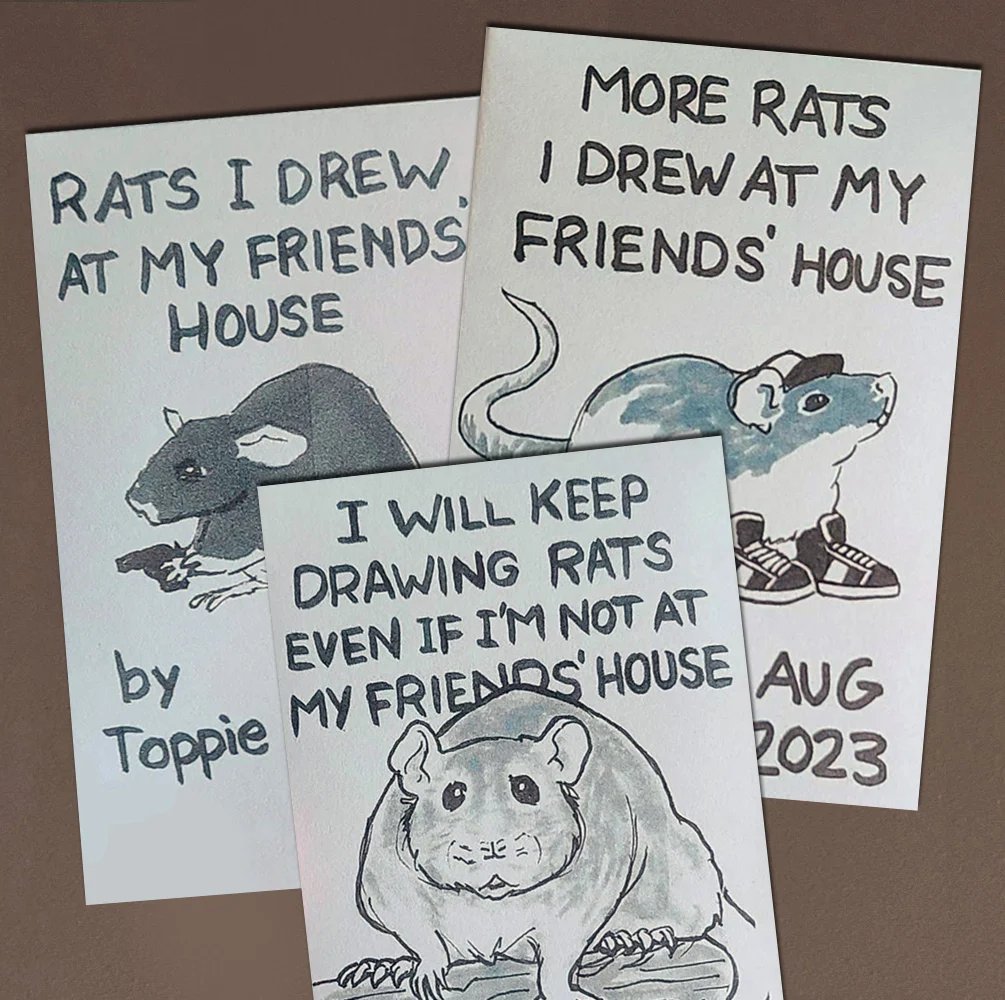 RATS I DREW
AT MY FRIENDS'
HOUSE
by
Toppie
MORE RATS
I DREW AT MY
FRIENDS' HOUSE
AUG
2023
I WILL KEEP
DRAWING RATS
EVEN IF I'M NOT AT
MY FRIENDS' HOUSE